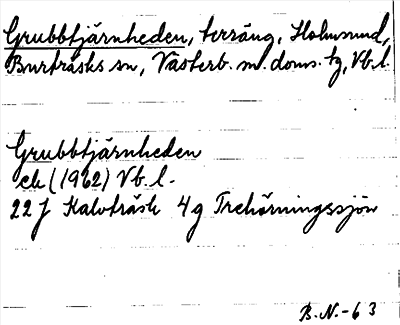 Grubbtjärnheden, terräng, Holmsund,
Burträsks sn, Västerb. m. doms. tg, Vb.l.
Grubbtjärnheden
ek (1962) Vb.l.
22 J Kalvträsk 4g Trehörningssjön
B.N.-63